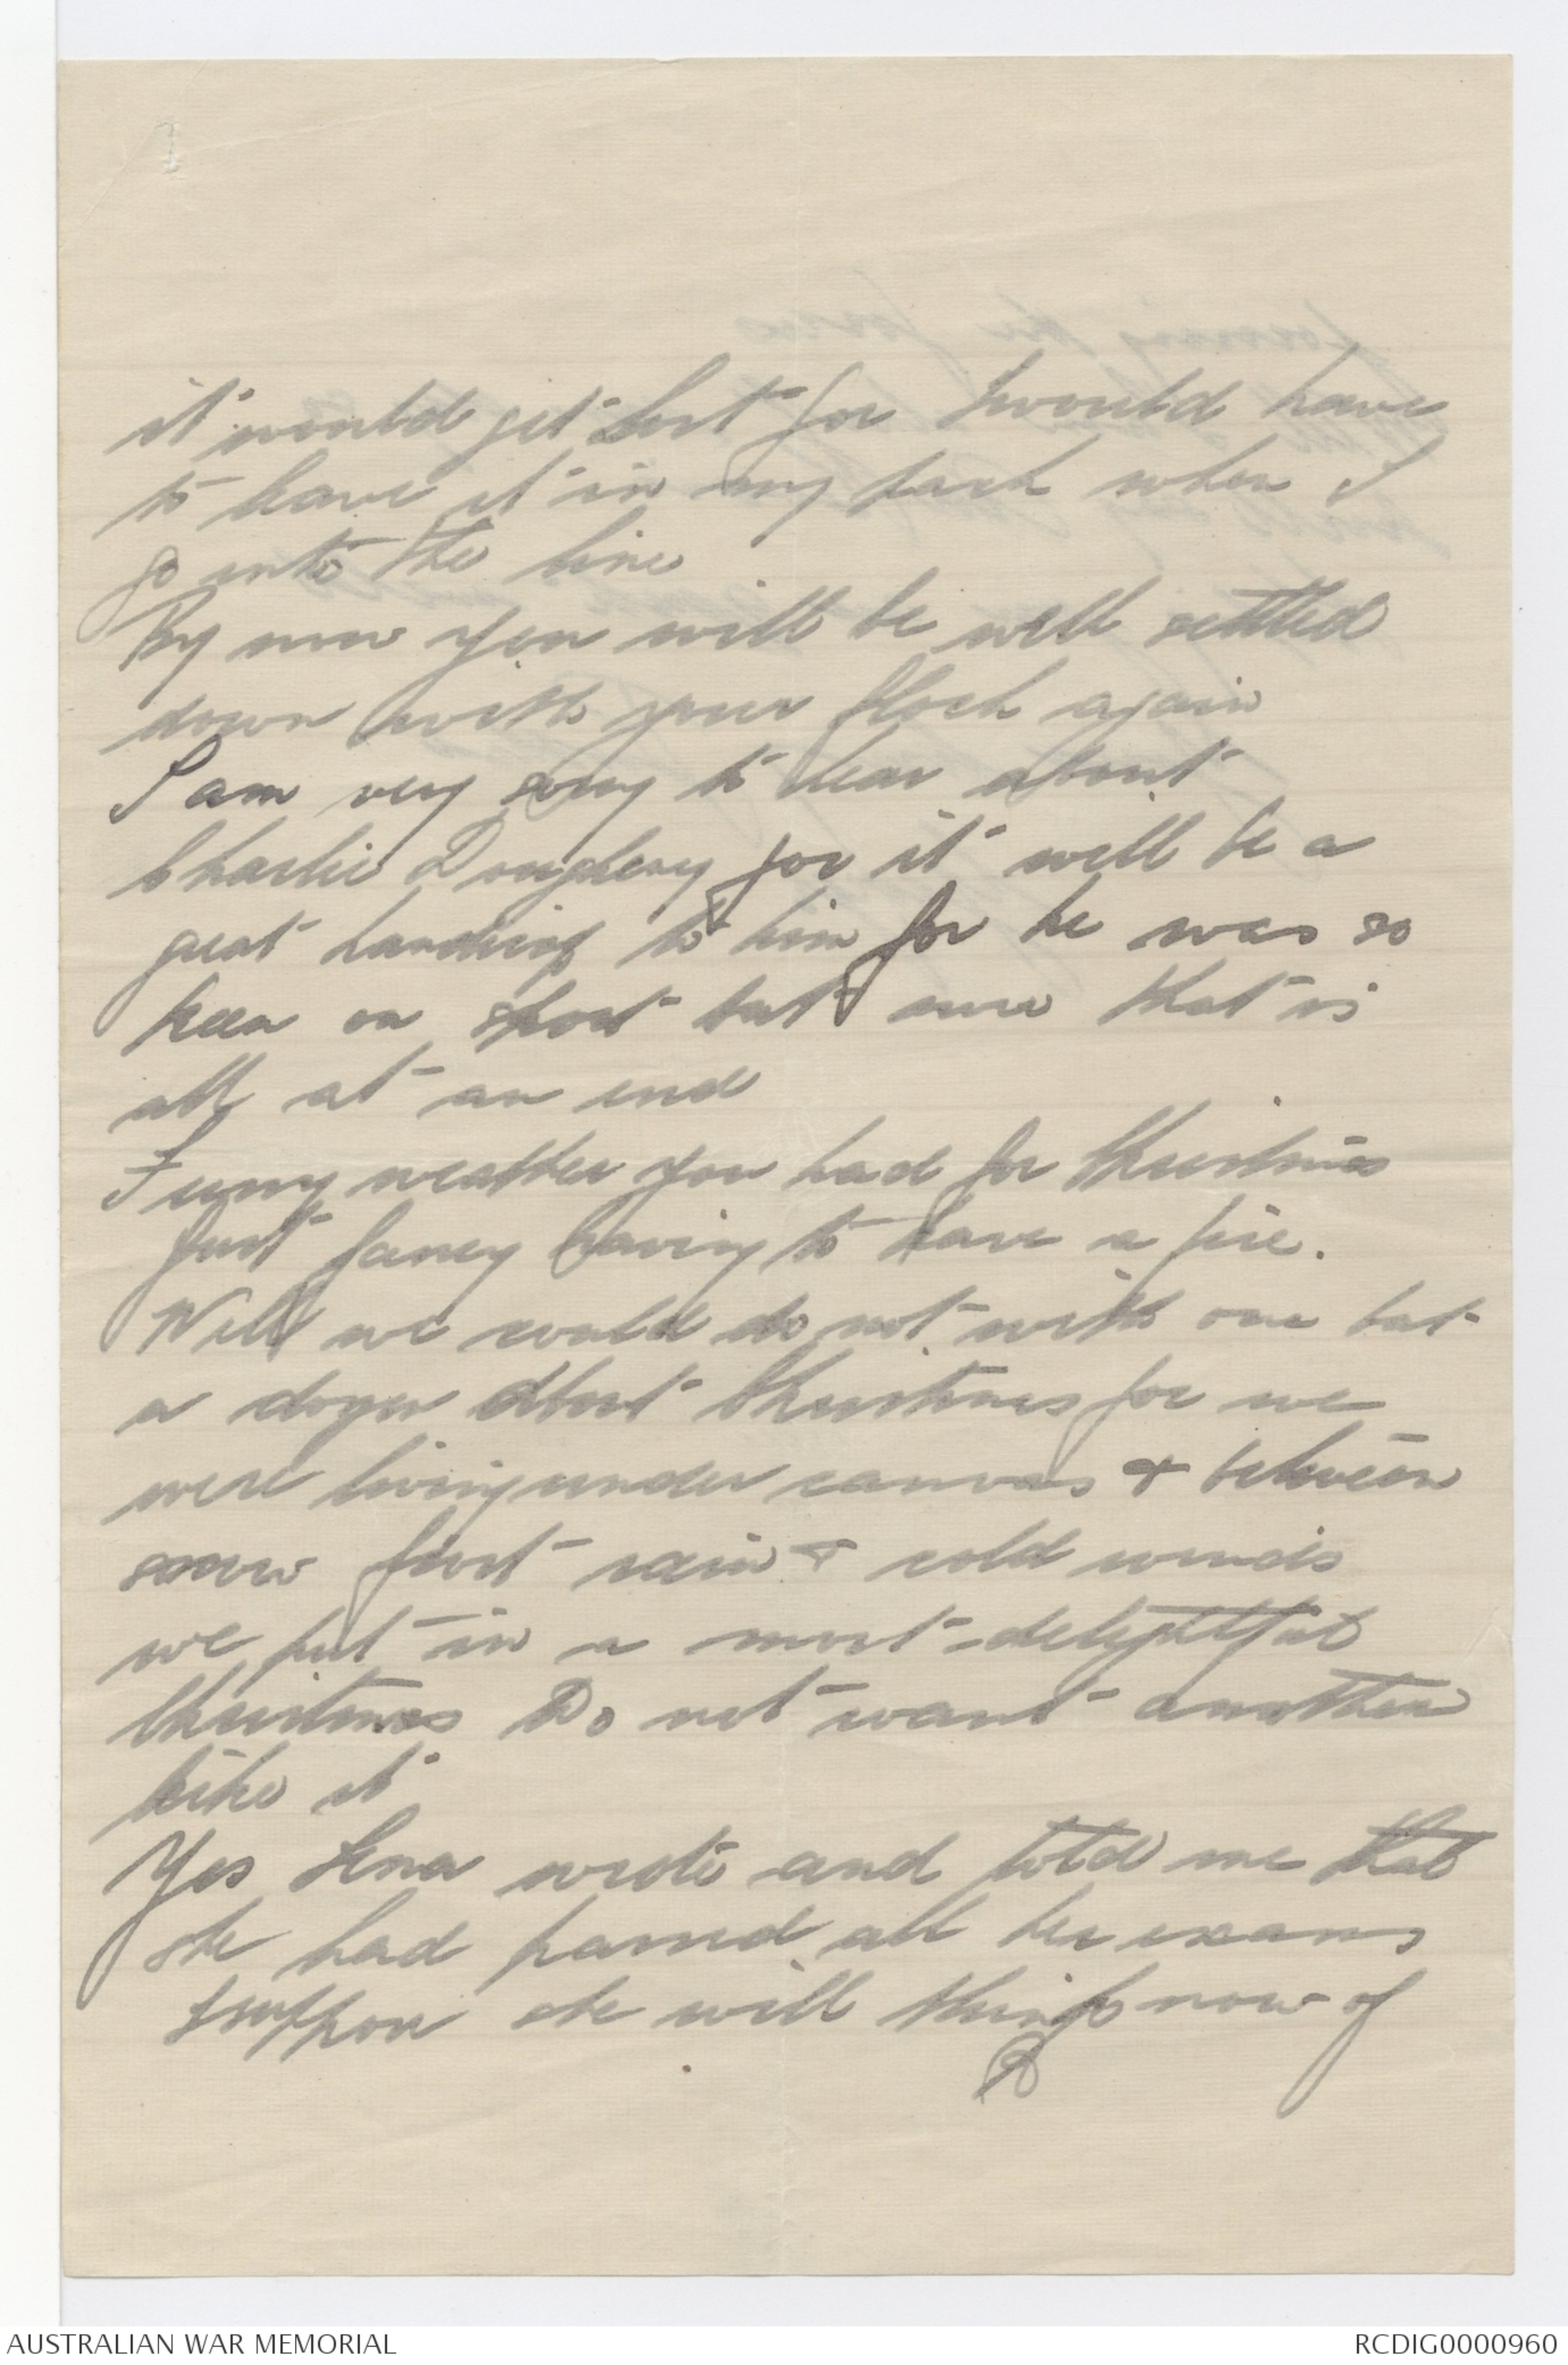 it would get lost for I would have
to leave it in my pack when I
go into the line
By now you will be well settled
down with your flock again
I am very sorry to hear about
Charlie for it will be a
great handicap to him for he was so
keen on sport but now that is
all at an end
Funny weather you had for Christmas
Just fancy having to have a fire.
Well we could do not with one but
a dozen about Christmas for we
were living under canvas & between
snow frost rain & cold winds
we put in a most delightful
Christmas Do not want another
like it
Yes Lena wrote and told me that
she had passed all her exams
I suppose she will think now of
AUSTRALIAN WAR MEMORIAL
RCDIG0000960